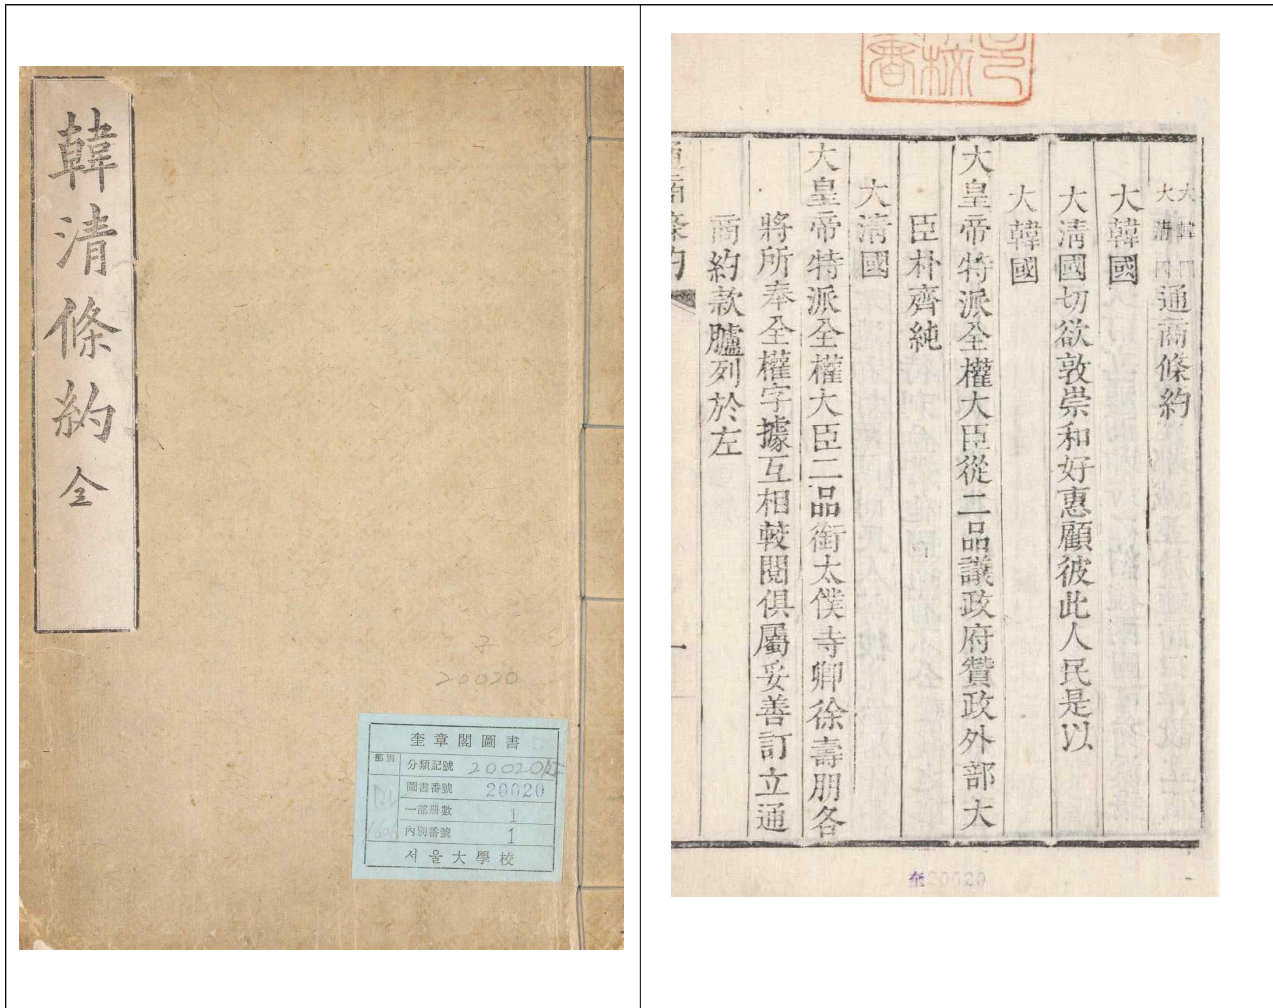 韓清條約 全
20020
奎章閣圖書
部別
分類記號 20020
圖書番號 20020
一部册數 1
內別番號 1
서울大學校
大韓
大清
通商條約
大韓國
大淸國切欲敦崇和好惠顧彼此人民是以
大韓國
大皇帝特派全權大臣從二品議政府贊政外部大
臣朴齊純
大清國
大皇帝特派全權大臣二品銜太僕寺卿徐壽朋各
將所奉全權字據互相較閱俱屬妥善訂立通
商約款臚列於左
通商條約
一
奎20020